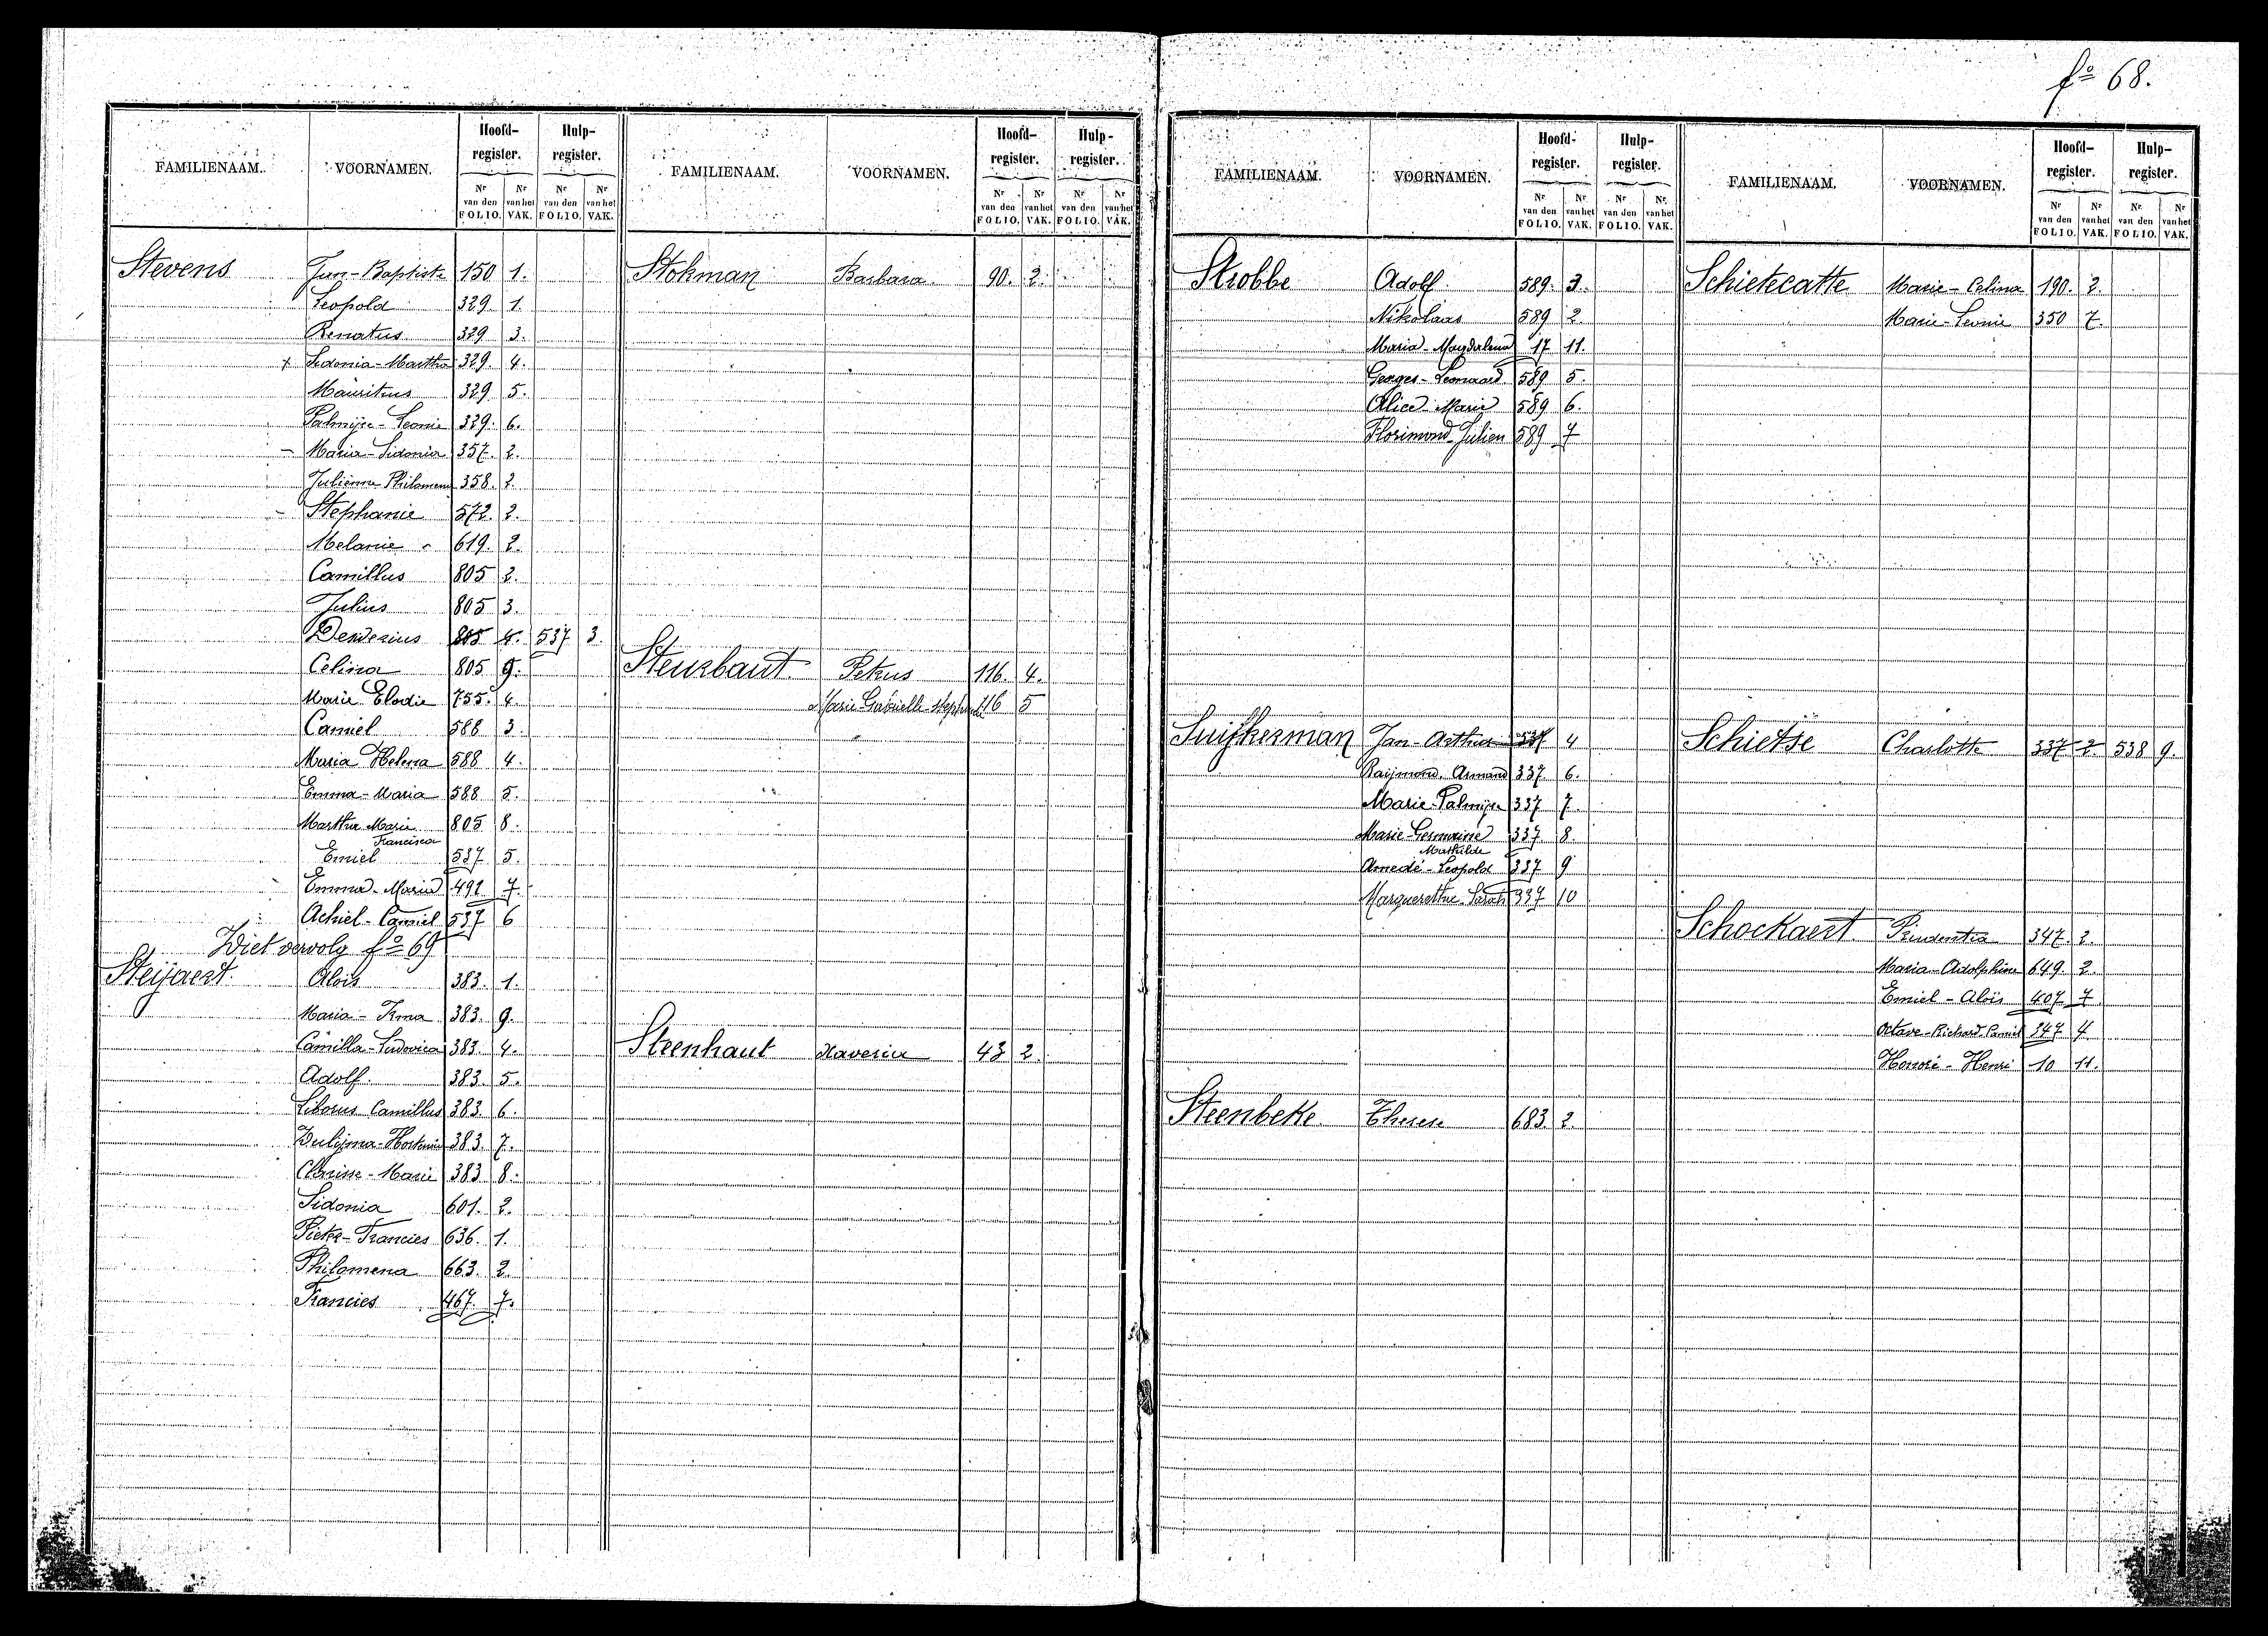 fo 68.
FAMILIENAAM. VOORNAMEN. Hoofd-register. Hulp-register.
Nr van den FOLIO. Nr van het VAK. Nr van den FOLIO. Nr van het VAK.
Stevens Jan-Baptiste 150 1.
Leopold 329 1.
Renatus 329 3.
x Sidonia-Martha 329. 4.
Mauritus 329 5.
Palmijre-Leonie 329. 6.
- Maria-Sidonia 357. 2.
Julienna Philomena 358. 2.
- Stephanie 572. 2.
Melanie 619. 2.
Camillus 805 2.
Julius 805 3.
Desiderius 805 4. 537 3.
Celina 805 9.
Marie Elodie 755. 4
Camiel 588 3.
Maria Helena 588 4.
Emma-Maria 588 5.
Martha Marie Francisca 805 8.
Emiel 537 5.
Emma-Maria 491 7.
Achiel-Camiel 537 6
Ziet vervolg fo 69
Steijaert. Aloïs 383. 1.
Maria-Irma 383. 9.
Camilla-Ludovica 383. 4.
Adolf. 383. 5.
Liborus Camillus 383. 6.
Zulijma-Hortensia 383. 7.
Clarisse-Marie 383 8.
Sidonia 601. 2.
Pieter-Francies 636. 1.
Philomena 663. 2.
Francies 467. 7.
FAMILIENAAM. VOORNAMEN. Hoofd-register. Hulp-register.
Nr van den FOLIO. Nr van het VAK. Nr van den FOLIO. Nr van het VAK.
Stokman Barbara. 90. 2.
Steurbaut. Petrus 116. 4.
Marie Gabrielle Stephanie 116 5
Steenhaut Xaveria 43 2.
FAMILIENAAM. VOORNAMEN. Hoofd-register. Hulp-register.
Nr van den FOLIO. Nr van het VAK. Nr van den FOLIO. Nr van het VAK.
Strobbe Adolf. 589. 3.
Nikolaas 589 2.
Maria-Magdalena 17 11.
Georges-Leonaard 589 5.
Alice-Marie 589 6.
Florimond-Julien 589 7
Suijkerman Jan-Arthur 337 4
Raijmond. Armand 337 6.
Marie-Palmijre 337 7.
Marie-Germaine Mathilde 337 8.
Amedé-Leopold 337 9
Marguerethe-Sarah 337 10
Steenbeke. Therese 683. 2.
FAMILIENAAM. VOORNAMEN. Hoofd-register. Hulp-register.
Nr van den FOLIO. Nr van het VAK. Nr van den FOLIO. Nr van het VAK.
Schietecatte Marie-Celina 190. 2.
Marie-Leonie 350 7.
Schietse Charlotte 337 2. 538 9.
Schockaert. Prudentia 347. 2.
Maria-Adolphine 649. 2.
Emiel-Aloïs 407 7
Octave-Richard-Camiel 347 4
Honoré-Henri 10 11.